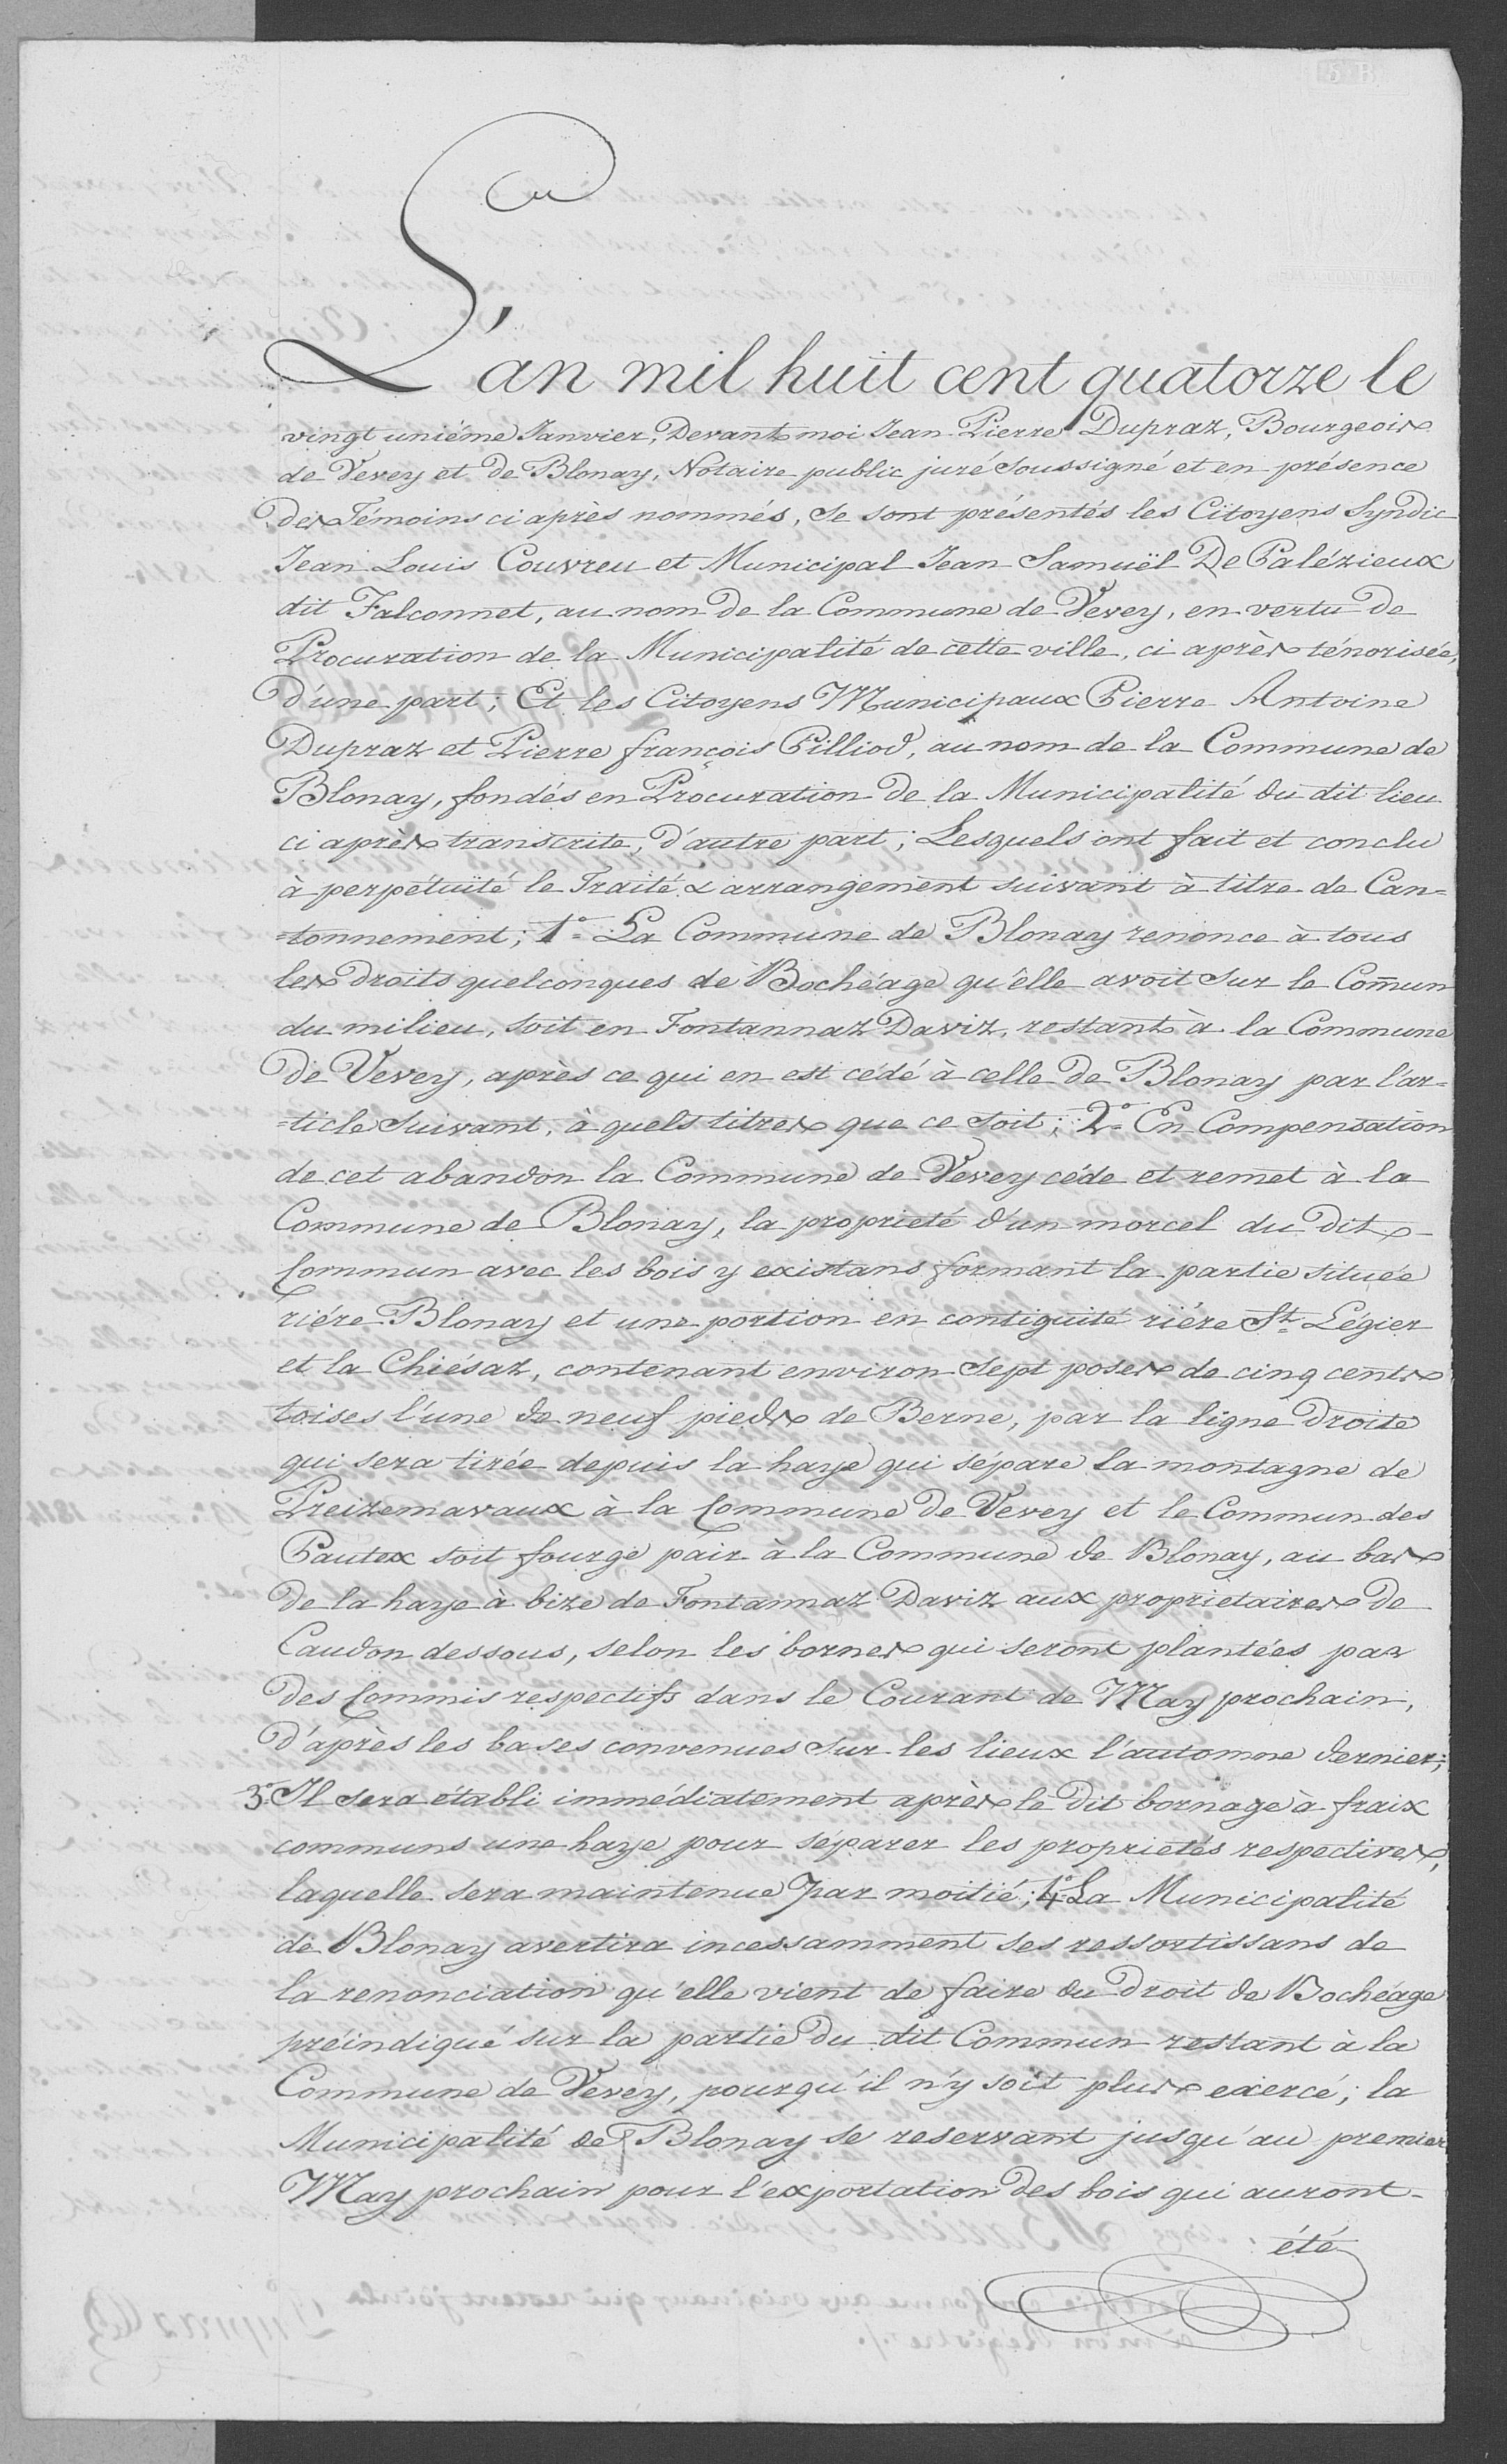 L'an mil huit cent quatorze le
vingt uniéme Janvier, Devant moi Jean Pierre Dupraz, Bourgeois
de Vevey et de Blonay, Notaire public juré soussigné et en présence
des Témoins ci après nommés, se sont présentés les Citoyens Syndic
Jean Louis Couvreu et Municipal Jean Samuël De Palézieux
dit Falconnet, au nom de la Commune de Vevey, en vertu de
Procuration de la Municipalité de cette ville, ci après ténorisée,
d'une part; Et les Citoyens Municipaux Pierre Antoine
Dupraz et Pierre françois Pilliod, au nom de la Commune de
Blonay, fondés en Procuration de la Municipalité du dit lieu
ci après transcrite, d'autre part; Lesquels ont fait et conclu
à perpétuïté le Traité & arrangement suivant à titre de Can=
=tonnement; 1° La Commune de Blonay renonce à tous
les droits quelconques de Bochéage qu'elle avoit sur le Com̄un
du milieu, soit en Fontannaz Daviz, restant à la Commune
de Vevey, après ce qui en est cédé à celle de Blonay par l'ar=
=ticle suivant, à quels titres que ce soit; 2° En Compensation
de cet abandon la Commune de Vevey céde et remet à la
Commune de Blonay, la proprieté d'un morcel du dit
Commun avec les bois y existans formant la partie située
riére Blonay et une portion en contiguité riére St Légier
et la Chiésaz, contenant environ sept poses de cinq cents
toises l'une de neuf pieds de Berne, par la ligne droite
qui sera tirée depuis la haye qui sépare la montagne de
Preizemavaux à la Commune de Vevey et le Commun des
Pautex soit fourge pair à la Commune de Blonay, au bas
de la haye à bize de Fontannaz Daviz aux proprietaires de
Caudon dessous, selon les bornes qui seront plantées par
des Commis respectifs dans le Courant de May prochain,
d'après les bases convenues sur les lieux l'automne dernier;
3° Il sera établi immédiatement après le dit bornage à fraix
communs une haye pour séparer les proprietés respectives,
laquelle sera maintenue par moitié; 4° La Municipalité
de Blonay avertira incessamment ses ressortissans de
la renonciation qu'elle vient de faire du droit de Bochéage
préindiqué sur la partie du dit Commun restant à la
Commune de Vevey, pour qu'il n'y soit plus exercé; la
Municipalité de Blonay se reservant jusqu'au premier
May prochain pour l'exportation des bois qui auront
été